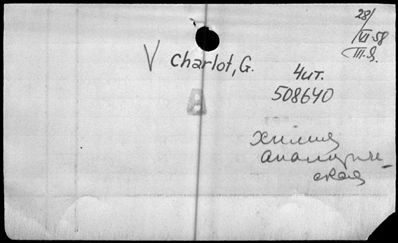 28/
VI 58
V Charlot, G.
Чит.
508640
химия
аналитиче-
ская